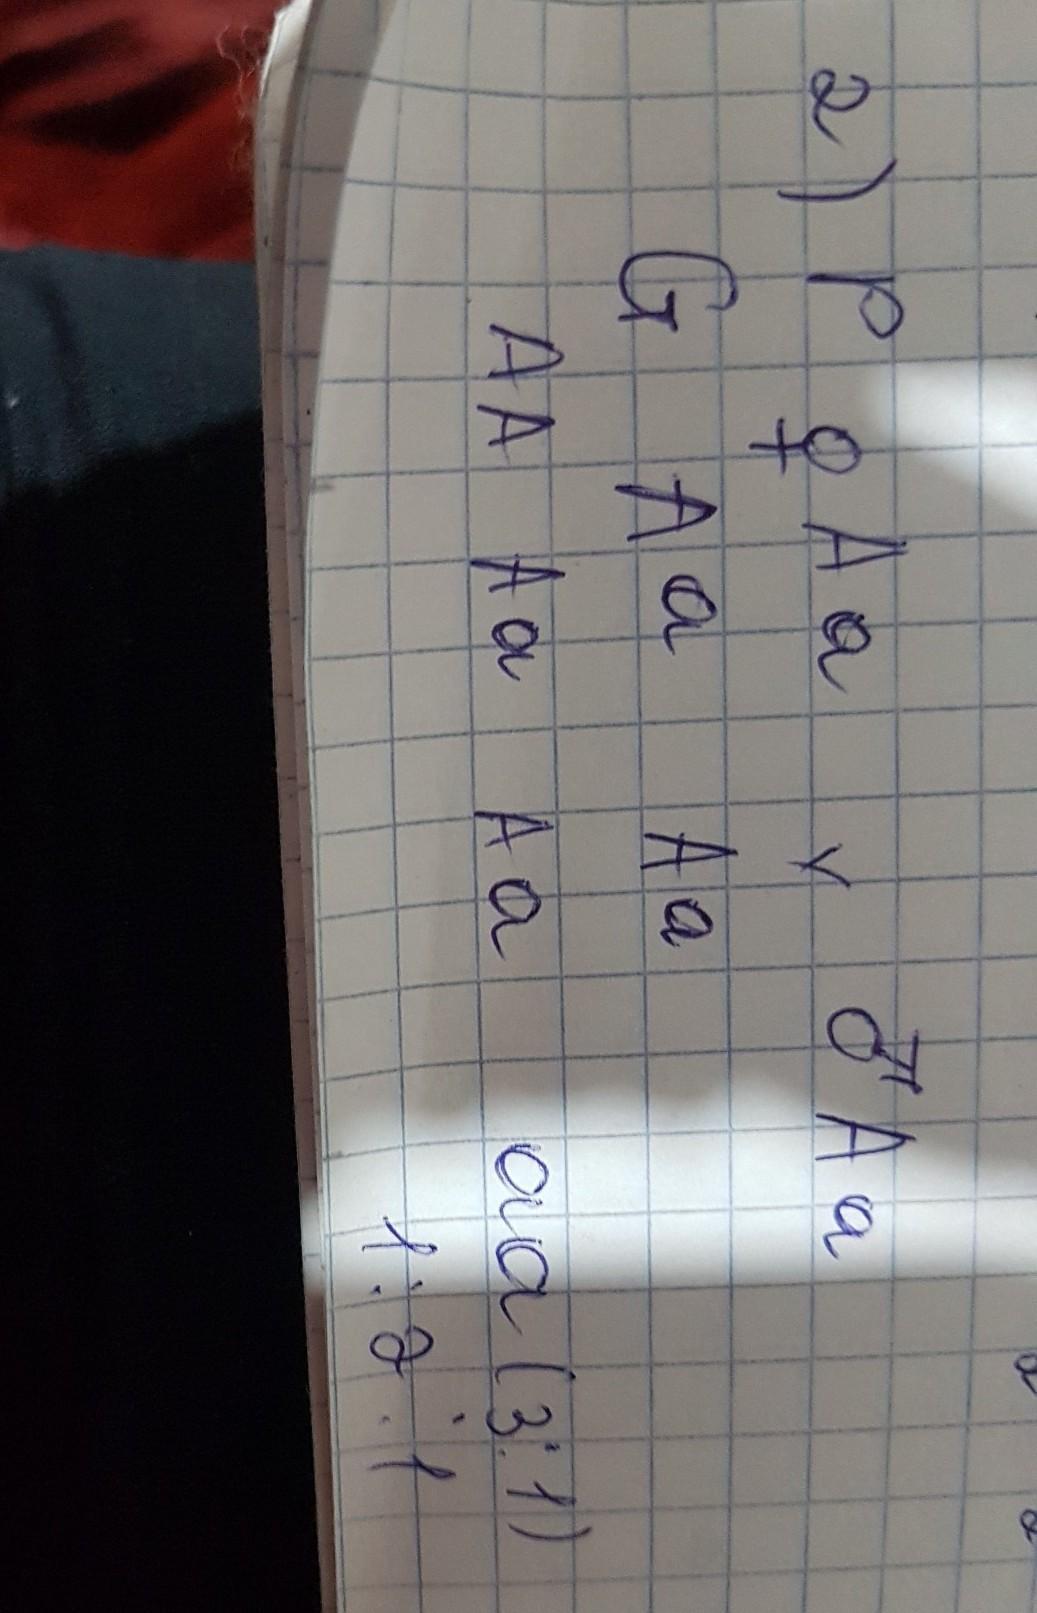 2) P ♀ Aa x ♂ Aa
G A a A a
AA Aa Aa aa (3:1)
1:2:1